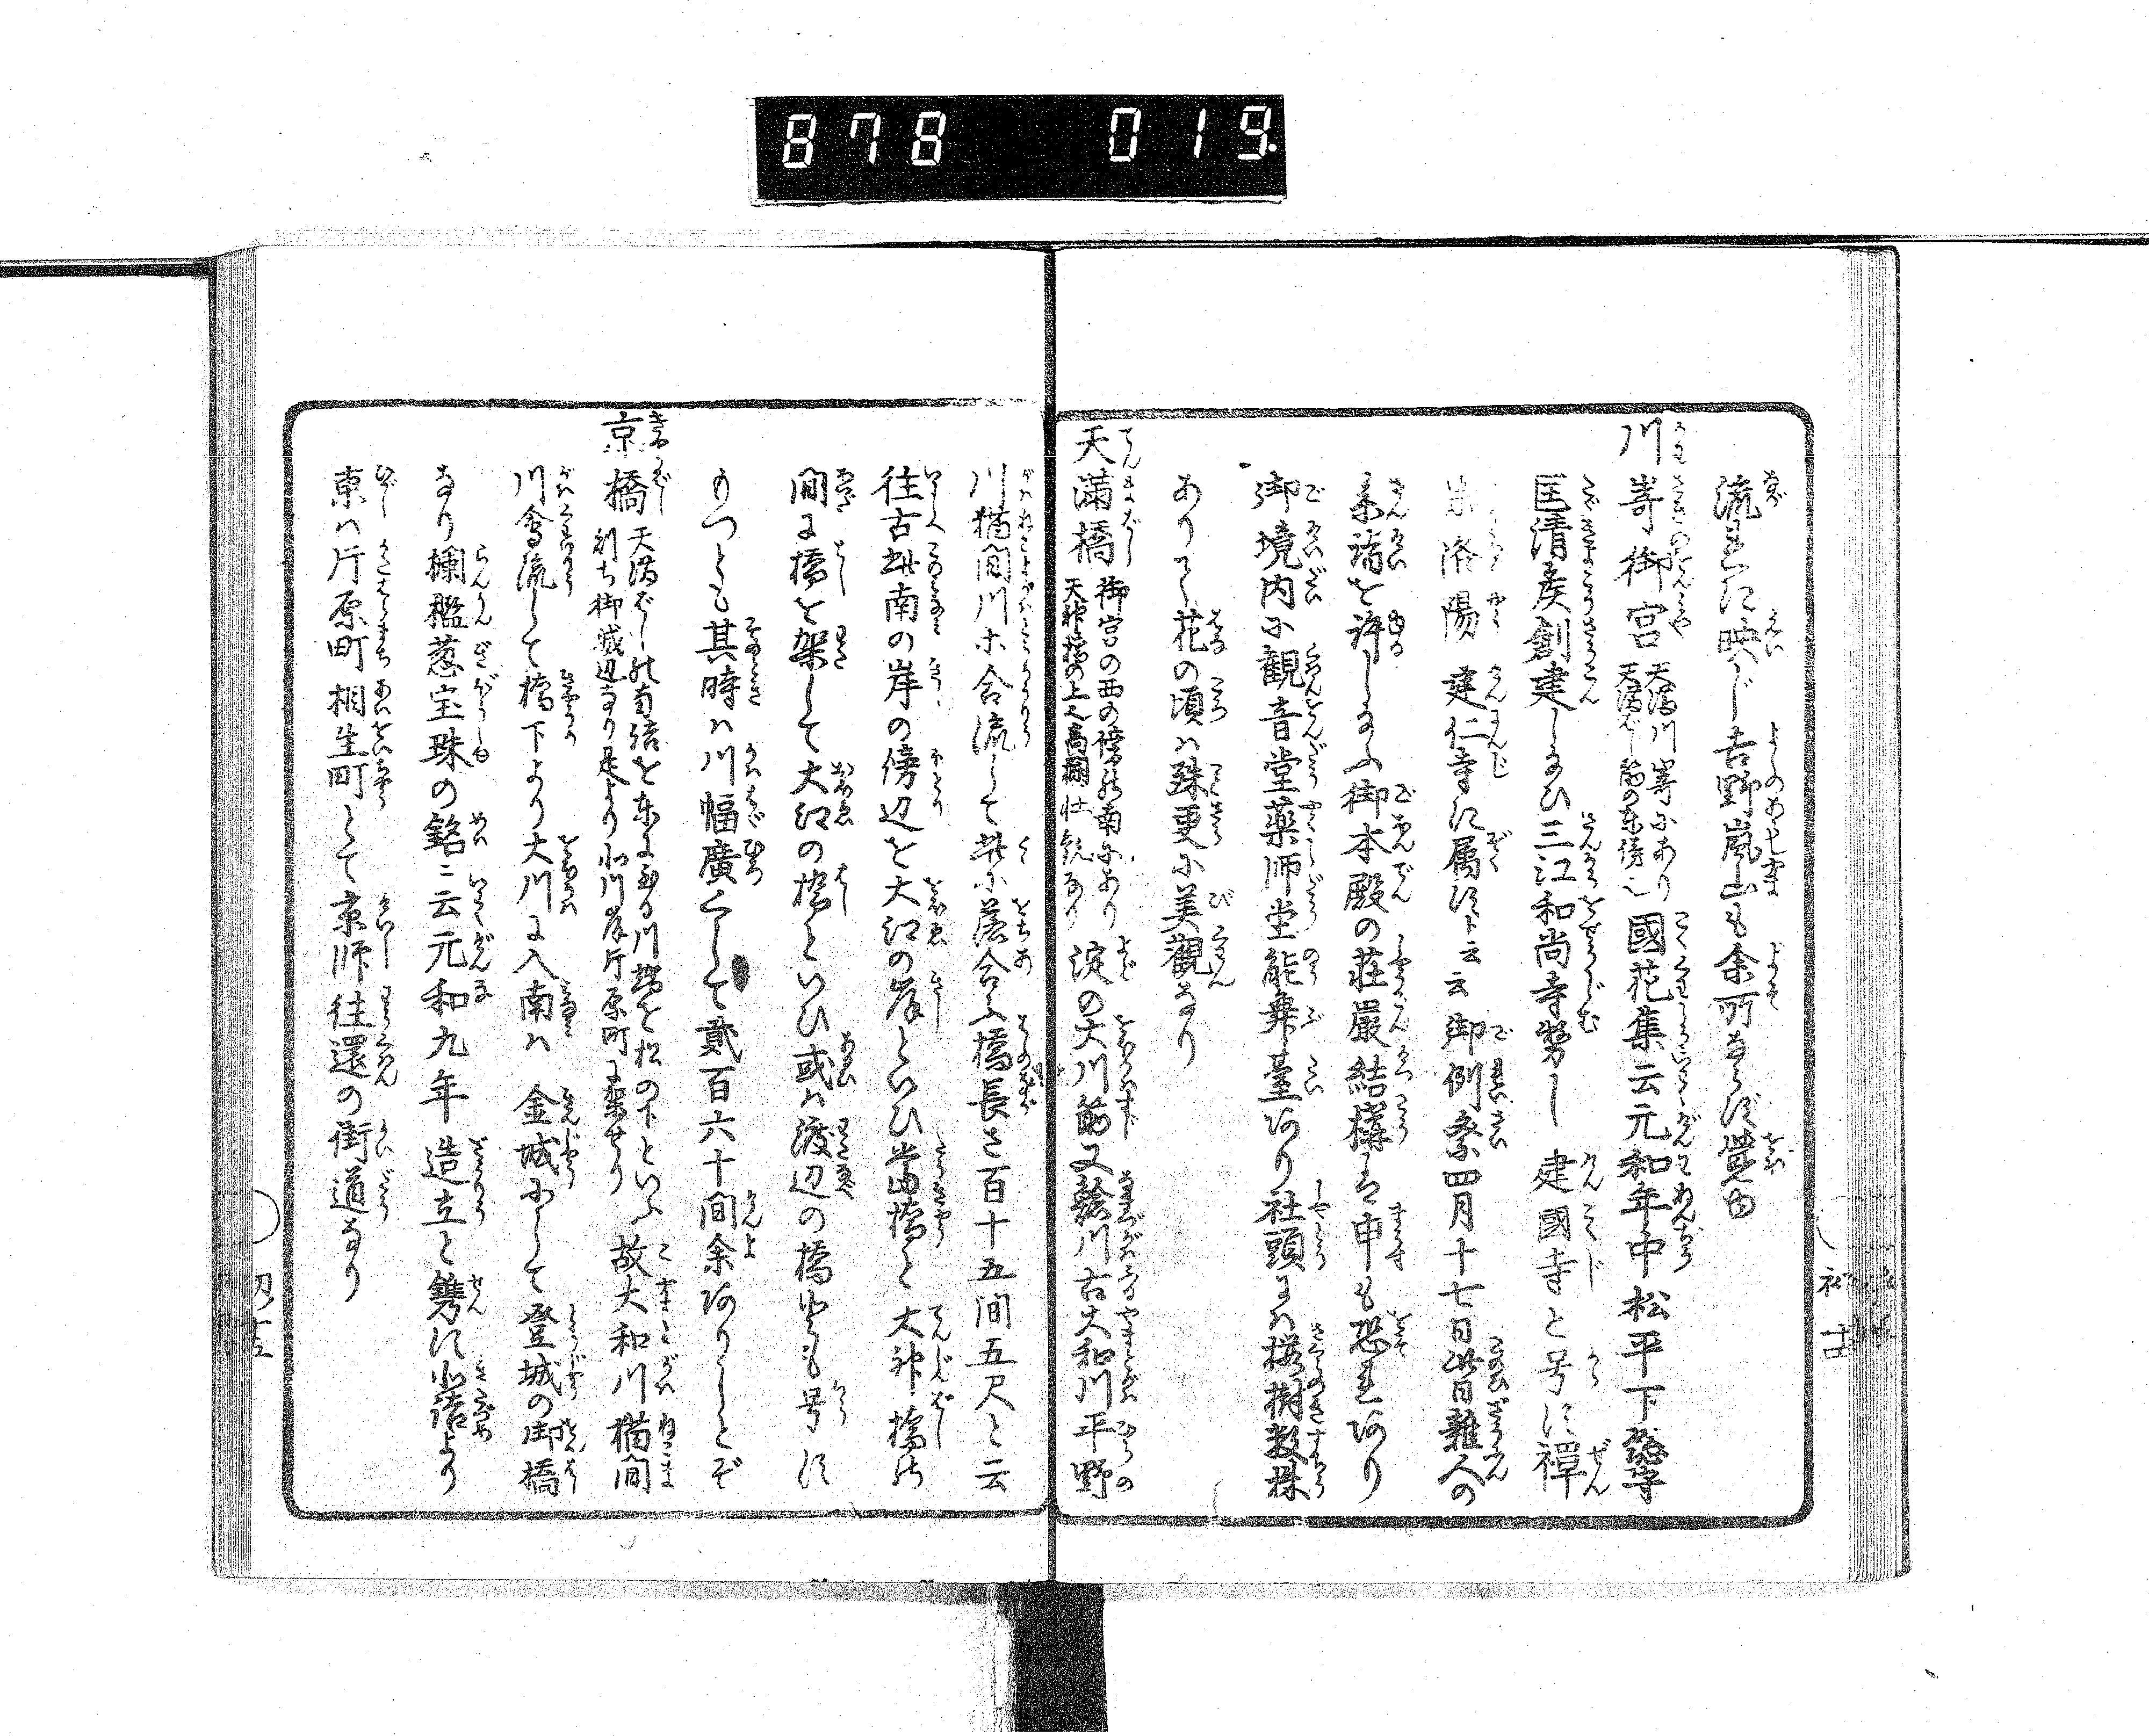 878 019
流れに映じ吉野嵐山も余所ならず覚ゆ
川嵜御宮 天満川嵜にあり 天満ばし筋の東傍也 國花集云元和年中松平下總守
匡清矦創建し給ひ三江和尚寺勢し 建國寺と号に禅
宗洛陽 建仁寺に属すト云云御例祭四月十七日此日雜人の
参詣を許し給ふ御本殿の荘嚴結構は申も恐れあり
御境内に觀音堂薬師堂能舞臺あり社頭には桜樹数株
ありて花の頃は殊更に美觀なり
天満橋 御宮の西の傍の南にあり 天神橋の上也高欄壮観なり 淀の大川筋又鯰川古大和川平野
川猫間川ホ合流して此に落合ふ橋長さ百十五間五尺と云
往古此南の岸の傍辺を大江の岸といひ當橋と天神橋の
間に橋を架して大江の橋といひ或は渡辺の橋とも号す
もつとも其時は川幅廣くして貳百六十間余ありしとぞ
京橋 天満ばしの南詰を東にいる川端を松の下といふ 則ち御城辺なり是より北川岸片原町に架せり 故大和川猫間
川會流して橋下より大川に入南は 金城にして登城の御橋
なり欄檻葱宝珠の銘ニ云元和九年造立と鐫す北詰より
東は片原町相生町とて京師往還の街道なり